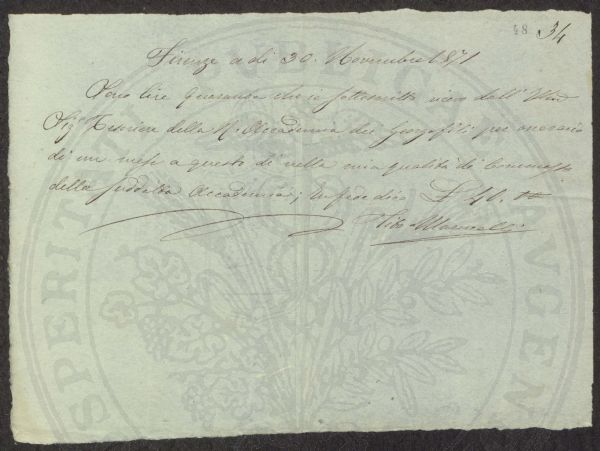 48 34
Firenze a dì 30. Novembre 1871
Sono lire Quaranta che io sottoscritto ricevo dall' Illmo
Sigr Tesoriere della R. Accademia dei Georgofili per onorario
di un mese a questo dì nella mia qualità di Commesso
della suddetta Accademia; In fede dico £ 40.
Tito
PUBLICAE
PROSPERITATI
AUGENDAE